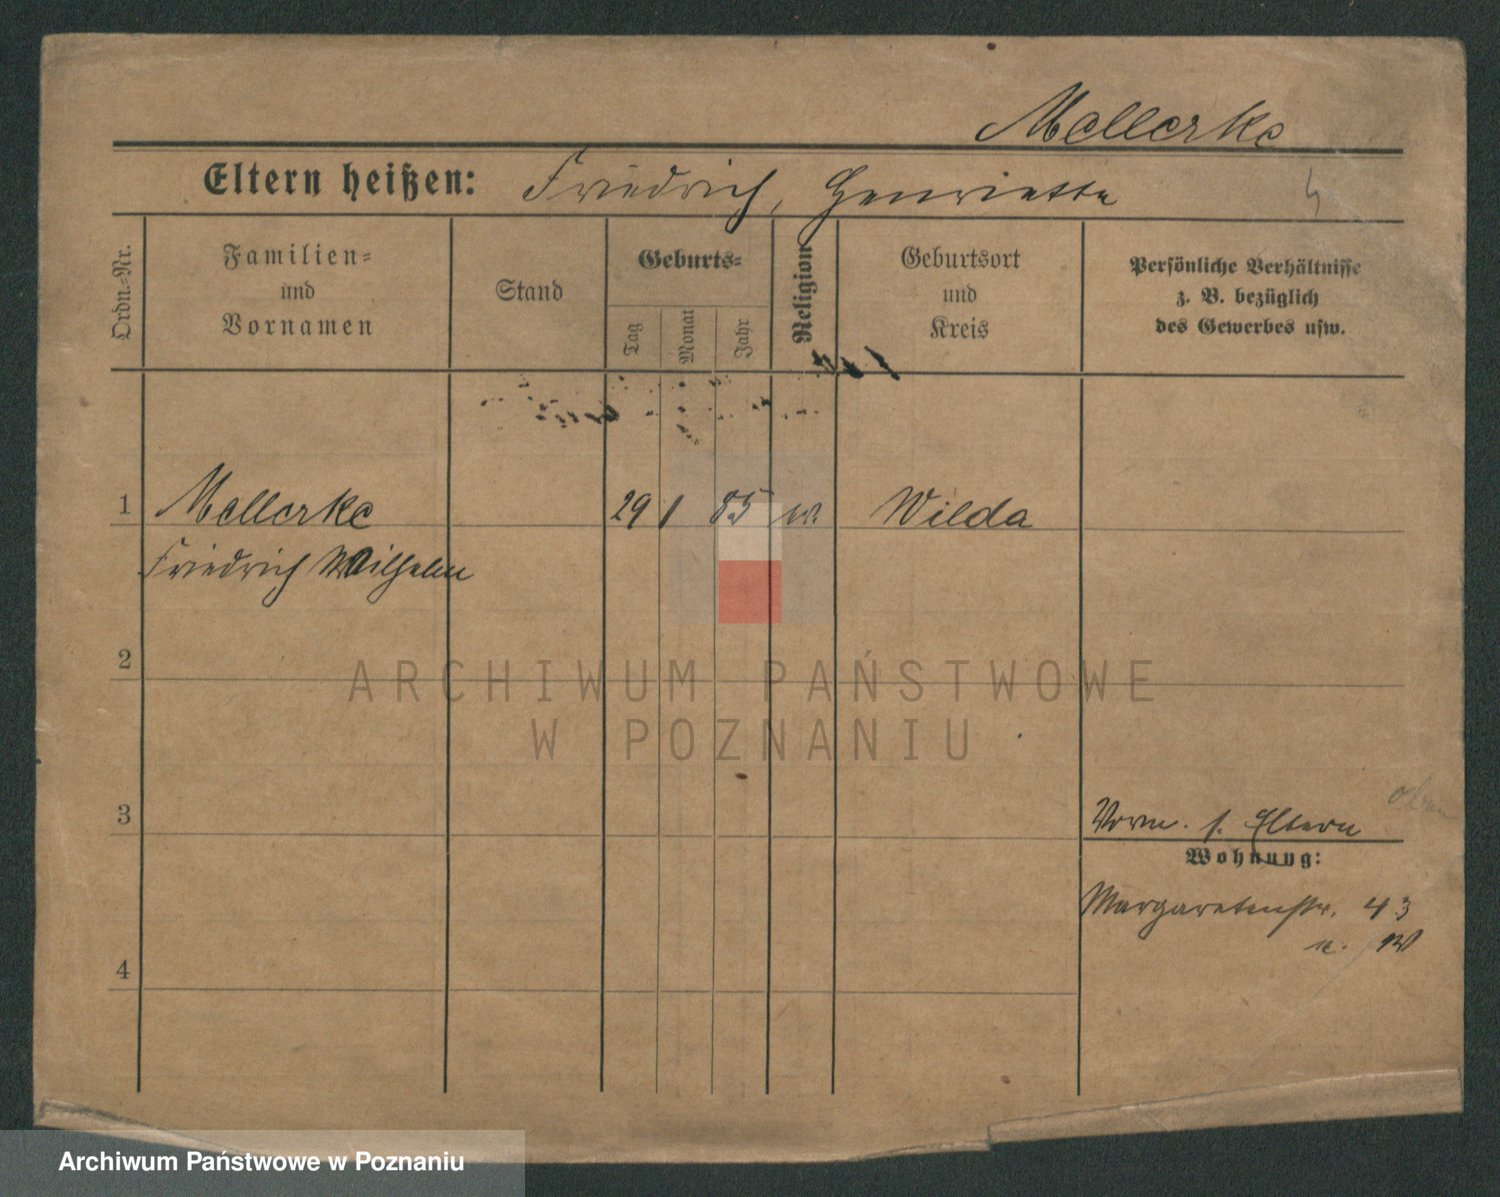 Mellerke
Eltern heißen: Friedrich, Henriette
Ordn.-Nr.
Familien-
und
Vornamen
Stand
Geburts-
Tag
Monat
Jahr
Religion
Geburtsort
und
Kreis
Persönliche Verhältnisse
z. B. bezüglich
des Gewerbes usw.
1 Mellerke 29 1 85 w. Wilda
Friedrich Wilhelm
2
ARCHIWUM PAŃSTWOWE
W POZNANIU
3
Vorm. s. Eltern
Wohnung:
Margaretenstr. 43
4
Archiwum Państwowe w Poznaniu